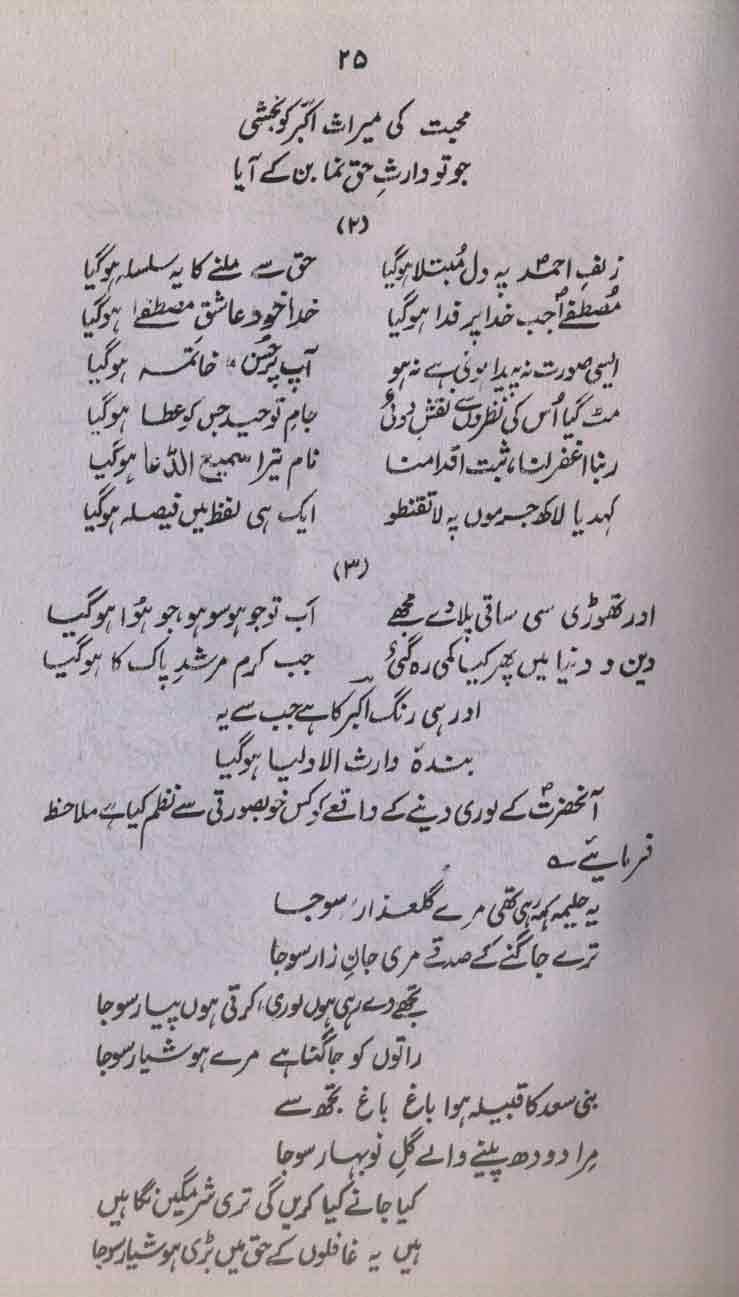 ۲۵
محبت کی میراث اکبر کو بخشی
جو تو وارثِ حق نما بن کے آیا
(۲)
زلفِ احمدؐ پہ دل مُبتلا ہوگیا حق سے ملنے کا یہ سلسلہ ہوگیا
مُصطفےٰؐ جب خدا پر فدا ہوگیا خدا خود عاشقِ مصطفےٰؐ ہوگیا
ایسی صورت نہ پیدا ہوئی ہے نہ ہو آپ پر حُسن کا خاتمہ ہوگیا
مٹ گیا اُس کی نظروں سے نقشِ دوئی جامِ توحید جس کو عطا ہوگیا
ربنا اغفرلنا، ثبت اقدامنا نام تیرا سمیع الدعا ہوگیا
کہدیا لاکھ جرموں پہ لا تقنطو ایک ہی لفظ میں فیصلہ ہوگیا
(۳)
اور تھوڑی سی ساقی پلا دے مجھے اَب تو جو ہو سو ہو، جو ہُوا ہوگیا
دین و دنیا میں پھر کیا کمی رہ گئی جب کرم مرشدِ پاک کا ہوگیا
اور ہی رنگ اکبر کا ہے جب سے یہ
بندۂ وارث الاولیا ہوگیا
آنحضرتؐ کے لوری دینے کے واقعے کو کس خوبصورتی سے نظم کیا ہے ملاحظ
فرمائیے ؎
یہ حلیمہ کہہ رہی تھی مرے گلعذار، سوجا
ترے جاگنے کے صدقے مری جانِ زار سوجا
تجھے دے رہی ہوں لوری، کرتی ہوں پیار سوجا
راتوں کو جاگتا ہے مرے ہوشیار سوجا
بنی سعد کا قبیلہ ہوا باغ باغ تجھ سے
مِرا دودھ پینے والے گلِ نوبہار سوجا
کیا جانے کیا کریں گی تری شرمگیں نگاہیں
ہیں یہ غافلوں کے حق میں بڑی ہوشیار سوجا